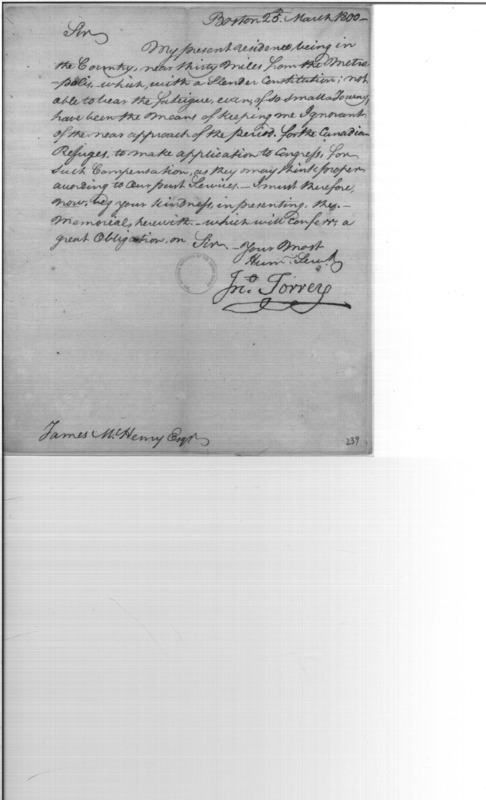 Boston 25th March 1800-
Sir
My present residence being in
the Country, near thirty miles from the Metro
-polis, which, with a Slender Constitution; not
able to bear the fatigue, even of so small a Journey
have been the Means of keeping me Ignorant
of the near approach of the period. for the Canadian
Refuges, to make application to Congress, for
Such Compensation, as they may think proper
according to Our past Services.- I must therefore,
now, beg your kindness, in presenting the
Memorial, herewith - which will Confer a
great Obligation, on Sir - Your Most
Hum. Servt
Jno Torrey
James McHenry Esqr
239